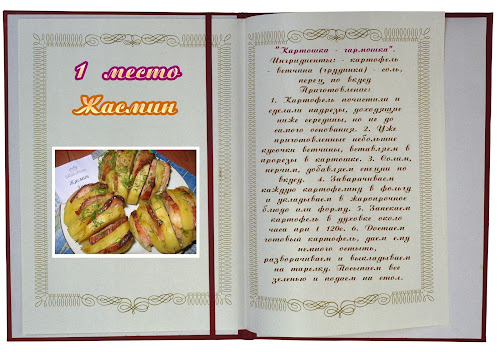 1 место
Жасмин
Жасмин
"Картошка - гармошка".
Ингридиенты: - картофель
- ветчина (грудинка) - соль,
перец по вкусу
Приготовление:
1. Картофель почистили и
сделали надрезы, доходящие
ниже середины, но не до
самого основания. 2. Уже
приготовленные небольшие
кусочки ветчины, вставляем в
прорезы в картошке. 3. Солим,
перчим, добавляем специи по
вкусу. 4. Заварачиваем
каждую картофелину в фольгу
и укладываем в жаропрочное
блюдо или форму. 5. Запекаем
картофель в духовке около
часа при t 120с. 6. Достаем
готовый картофель, даем ему
немного остыть,
разворачиваем и выкладываем
на тарелку. Посыпаем все
зеленью и подаем на стол.